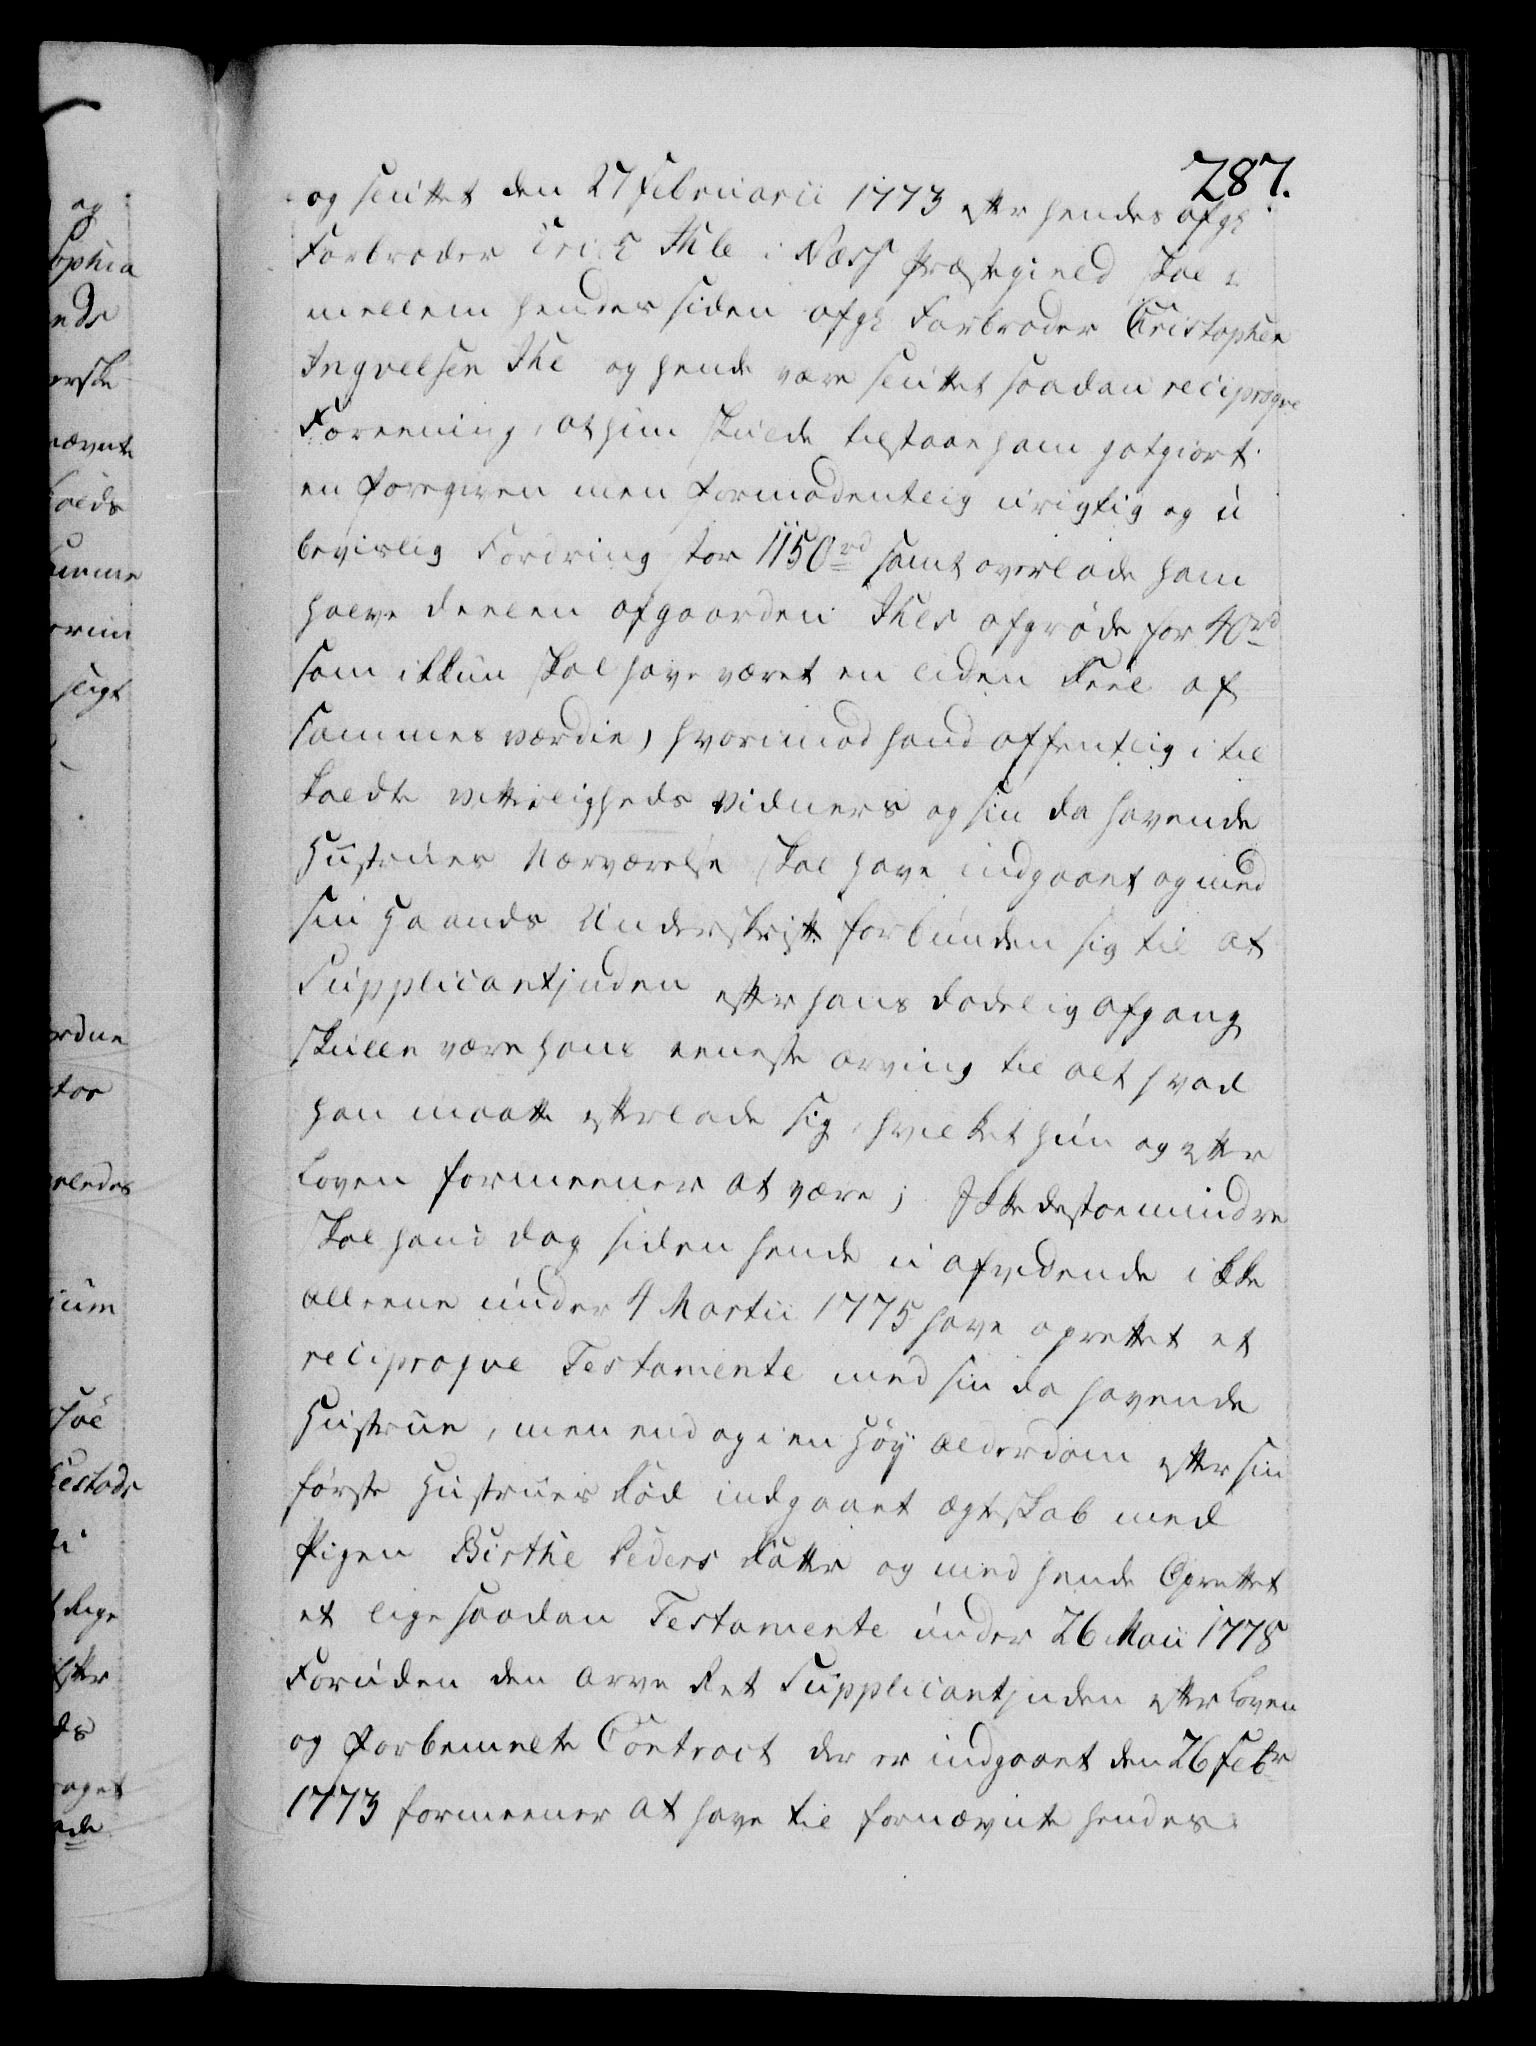 287.
og sluttet den 27 Februarii 1773 efter hendes afgl:
Farbroder Erich Ihle i Næss Præstegield skal i
mellem hendes siden afgl: Farbroder Christopher
Ingvelsen Ihle og hende være sluttet saadan reciproqve
Foreening, at hun skulde tilstaae ham gotgiort
en foregiven men formodentlig urigtig og u
bevislig Fordring stor 1150 rd samt overlade ham
halve deelen af gaarden Ihles afgrøde for 40 rd
som ikkun skal have været en liden Deel af
sammes værdie, hvorimod hand offentlig i til
kaldte vitterligheds Vidners og sin da havende
Hustrues Nærværelse skal have indgaaet og med
sin Haands Underskrift forbunden sig til at
Supplicantinden efter hans dødelig afgang
skulle være hans eeneste arving til alt hvad
han maatte efterlade sig, hvilket hun og efter
Loven formeener at være; Ikke destoemindre
skal hand dog siden hende u afvidende ikke
alleene under 4 Martii 1775 have oprettet et
reciproqve Testamente med sin da havende
Hustrue, men end og i en Høy alderdom efter sin
første Hustrues Død indgaaet ægteskab med
Pigen Birthe Peders Datter og med hende Oprettet
et lige saadan Testamente under 26 Maii 1778
Foruden den arve Ret Supplicantinden efter Loven
og forbemelte Contract der er indgaaet den 26 Febr
1773 formeener at have til fornævnte hendes